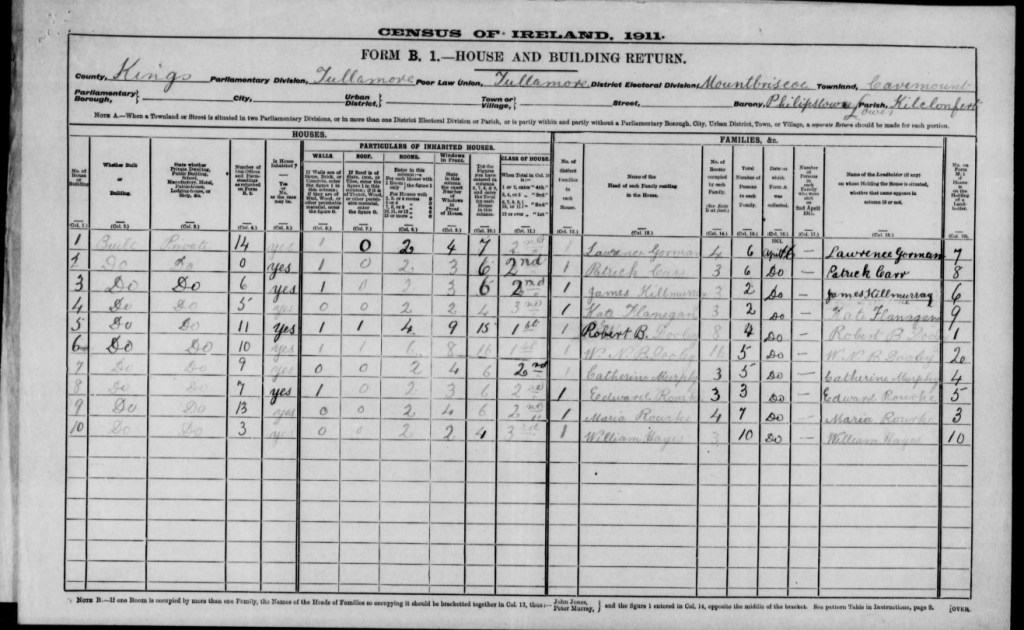 CENSUS OF IRELAND, 1911.
FORM B. 1.—HOUSE AND BUILDING RETURN.
County, Kings Parliamentary Division, Tullamore Poor Law Union, Tullamore District Electoral Division, Mountbriscoe Townland, Cavemount
Parliamentary Borough, City, Urban District, Town or Village, Street, Barony, Philipstown Lower Parish, Kilclonfert
NOTE A.—When a Townland or Street is situated in two Parliamentary Divisions, or in more than one District Electoral Division or Parish, or is partly within and partly without a Parliamentary Borough, City, Urban District, Town, or Village, a separate Return should be made for each portion.
HOUSES. FAMILIES, &c.
PARTICULARS OF INHABITED HOUSES.
WALLS. ROOF. ROOMS. Windows in Front. CLASS OF HOUSE.
No. of House or Building Whether Built or Building. Is House Inhabited? Yes or No, as the case may be. No. of distinct Families in each House. Name of the Head of each Family residing in the House. Total Number of Persons in each Family. Date on which Form A was collected. Name of the Landholder (if any) on whose Holding the House is situated, whether that name appears in column 13 or not.
(Col. 1.) (Col. 2.) (Col. 3.) (Col. 4.) (Col. 5.) (Col. 6.) (Col. 7.) (Col. 8.) (Col. 9.) (Col. 10.) (Col. 11.) (Col. 12.) (Col. 13.) (Col. 14.) (Col. 15.) (Col. 16.) (Col. 17.) (Col. 18.) (Col. 19.)
1911.
1 Built Private 14 yes 1 0 2 4 7 2nd 1 Lawrence Gorman 4 6 April 16 — Lawrence Gorman 7
2 Do Do 0 yes 1 0 2 3 6 2nd 1 Patrick Carr 3 6 Do — Patrick Carr 8
3 Do Do 6 yes 1 0 2 3 6 2nd 1 James Killmurray 3 2 Do — James Killmurray 6
4 Do Do 5 yes 0 0 2 2 4 3rd 1 Kate Flanegan 3 2 Do — Kate Flanagen 9
5 Do Do 11 yes 1 1 4 9 15 1st 1 Robert B. 8 4 Do — Robert B 1
6 Do Do 10 yes 1 1 6 8 16 1st 1 W. N. B. 16 5 Do — W. N. B. 2
7 Do Do 9 yes 0 0 2 4 6 2nd 1 Catherine Murphy 3 5 Do — Catherine Murphy 4
8 Do Do 7 yes 1 0 2 3 6 2nd 1 Edward Rourke 3 3 Do — Edward Rourke 5
9 Do Do 13 yes 0 0 2 4 6 2nd 1 Maria Rourke 4 7 Do — Maria Rourke 3
10 Do Do 3 yes 0 0 2 2 4 3rd 1 William Hayes 3 10 Do — William Hayes 10
NOTE B.—If one Room is occupied by more than one Family, the Names of the Heads of Families so occupying it should be bracketed together in Col. 13, thus:— John Jones, Peter Murray, and the figure 1 entered in Col. 14, opposite the middle of the bracket. See pattern Table in Instructions, page 9. [OVER.